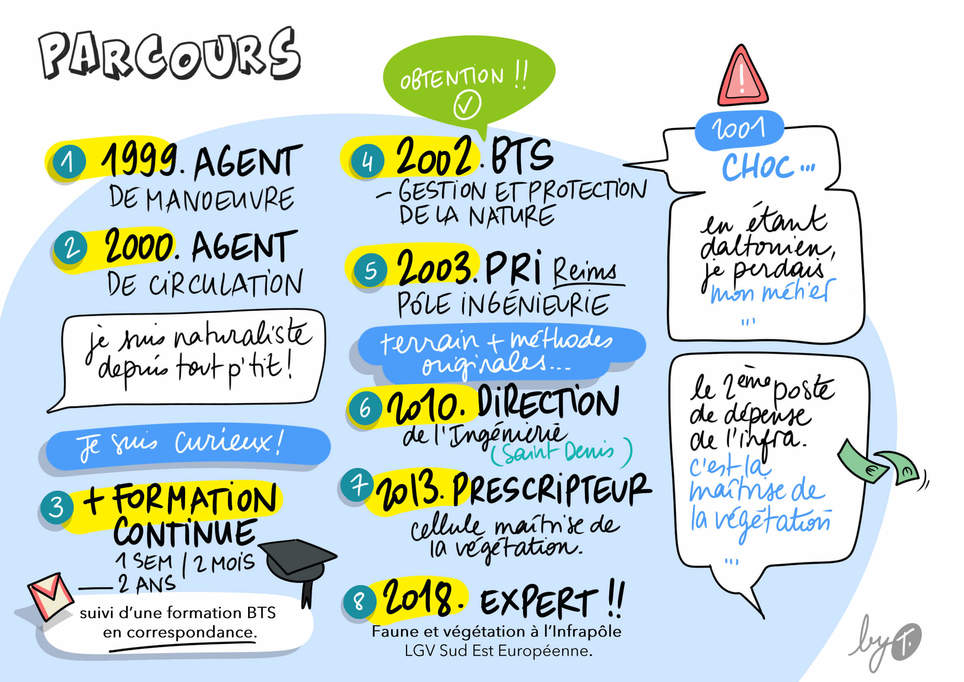 PARCOURS
1 1999. AGENT
DE MANOEUVRE
2 2000. AGENT
DE CIRCULATION
je suis naturaliste
depuis tout p'tit !
Je suis curieux !
3 + FORMATION
CONTINUE
1 SEM / 2 MOIS
— 2 ANS
suivi d'une formation BTS
en correspondance.
OBTENTION !!
4 2002. BTS
– GESTION ET PROTECTION
DE LA NATURE
5 2003. PRI Reims
PÔLE INGÉNIEURIE
terrain + méthodes
originales...
6 2010. DIRECTION
de l'Ingénierie
(Saint Denis)
7 2013. PRESCRIPTEUR
cellule maîtrise de
la végétation.
8 2018. EXPERT !!
Faune et végétation à l'Infrapôle
LGV Sud Est Européenne.
!
2001
CHOC...
en étant
daltonien,
je perdais
mon métier
...
le 2ème poste
de dépense
de l'infra.
c'est la
maîtrise de
la végétation
...
€ €
by T.